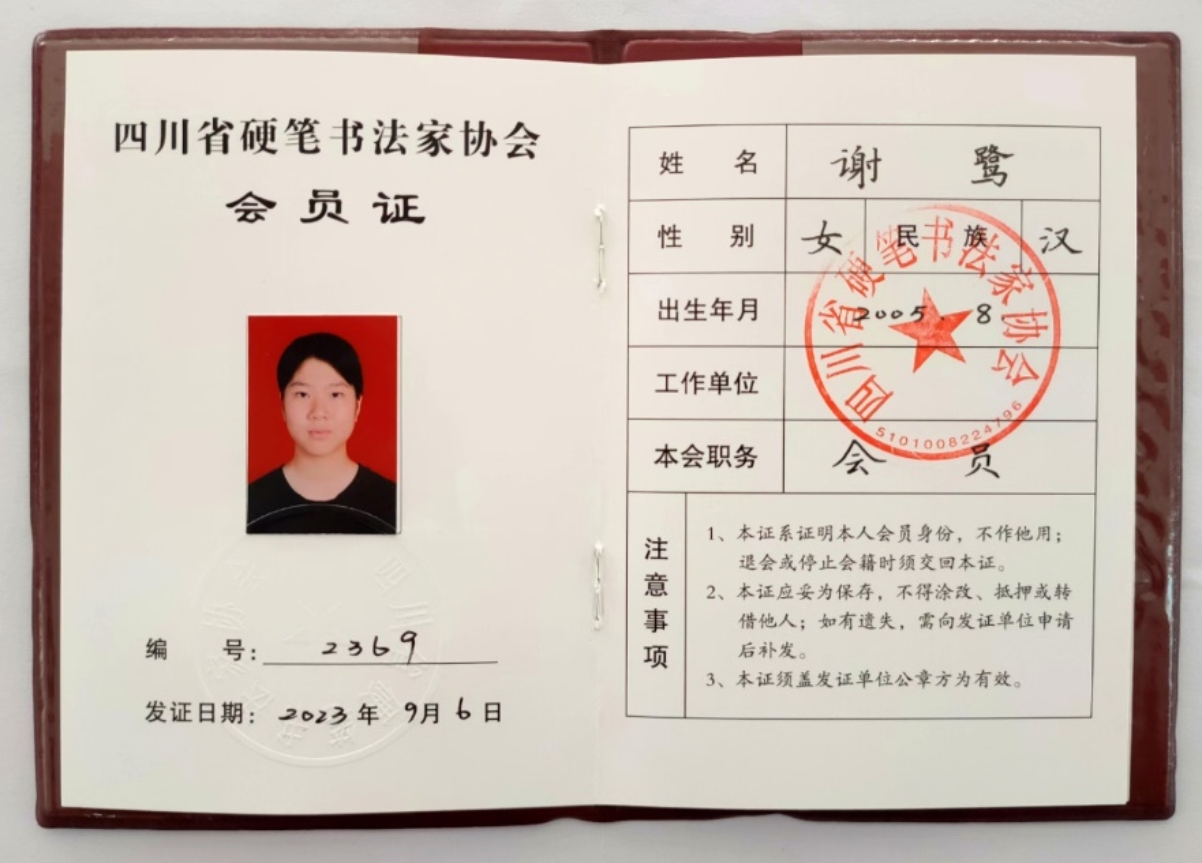 四川省硬笔书法家协会
会员证
编 号: 2369
发证日期: 2023年 9月 6日
姓 名 谢 鹭
性 别 女 民 族 汉
出生年月 2005.8.
工作单位
本会职务 会 员
四川省硬笔书法家协会
5101008224796
注意事项
1、本证系证明本人会员身份，不作他用；
退会或停止会籍时须交回本证。
2、本证应妥为保存，不得涂改、抵押或转
借他人；如有遗失，需向发证单位申请
后补发。
3、本证须盖发证单位公章方为有效。